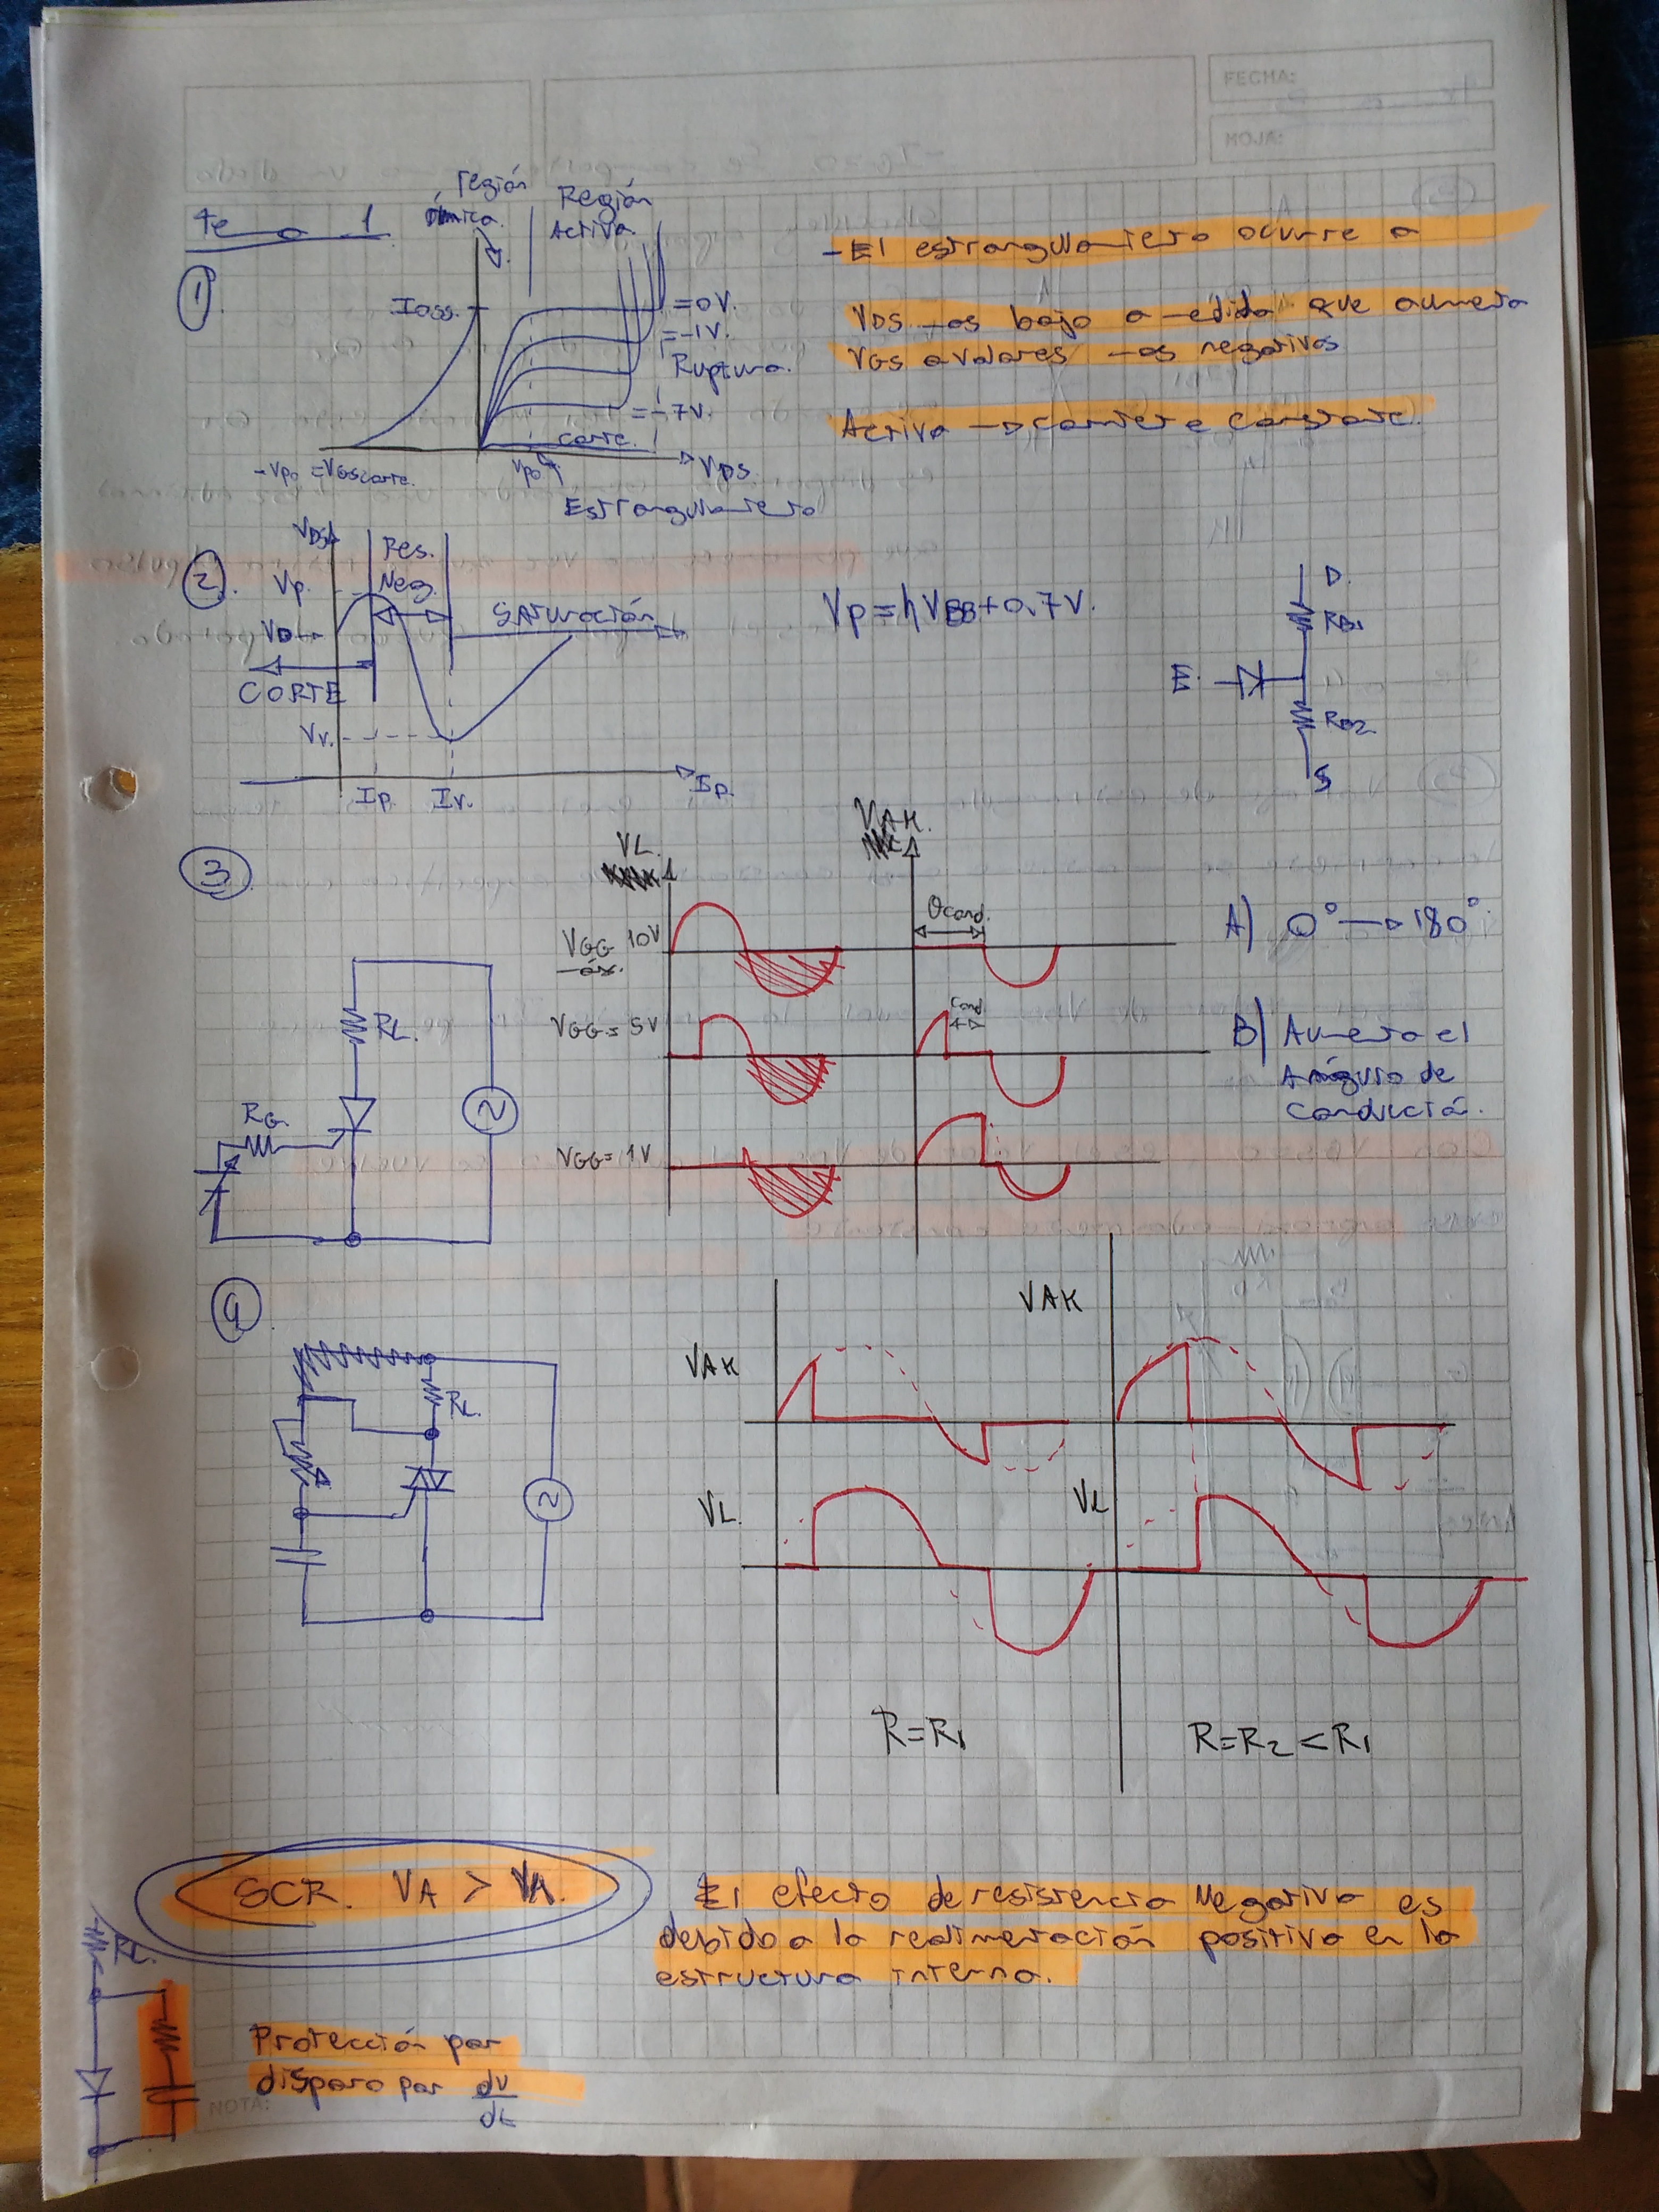 FECHA:
HOJA:
Tema 1
región
óhmica
Región
Activa
①
IDSS
=0V.
=-1V.
Ruptura.
=-7V.
corte.
-Vpo =VGScorte.
Vpo
VDS.
Estrangulamiento
-El estrangulamiento ocurre a
VDS mas bajo a medida que aumenta
VGS a valores mas negativos
Activa → corriente constante.
②
VDS
Res.
Neg.
Vp.
VD
SATURACIÓN
CORTE
Vv.
Ip.
Iv.
Ip.
Vp=ηVBB+0.7V.
D.
RB1
E.
RB2
S
③
VL.
VAK.
θcond.
VGG 10V
máx.
VGG= 5V
Cond
VGG= 1V
RL.
RG.
A) 0° → 180°
B) Aumenta el
Ángulo de
Conducción.
④
RL.
VAK
VAK
VL.
VL
R=R1
R=R2<R1
SCR. VA > VA.
El efecto de resistencia Negativa es
debido a la realimentación positiva en la
estructura interna.
RL.
Protección por
disparo por dv
dt
NOTA: